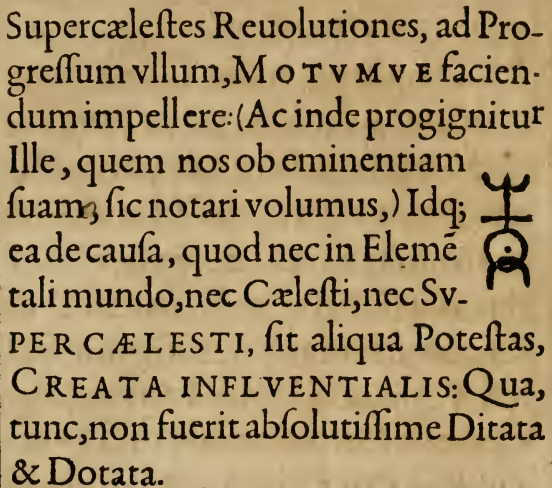 Supercæleſtes Reuolutiones, ad Pro-
greſſum vllum, MOTVMVE facien-
dum impellere: (Ac inde progignitur
Ille, quem nos ob eminentiam
ſuam, ſic notari volumus,) Idq;
ea de cauſa, quod nec in Elemē
tali mundo, nec Cæleſti, nec Sv-
PERCÆLESTI, ſit aliqua Poteſtas,
CREATA INFLVENTIALIS: Qua,
tunc, non fuerit abſolutiſſime Ditata
& Dotata.